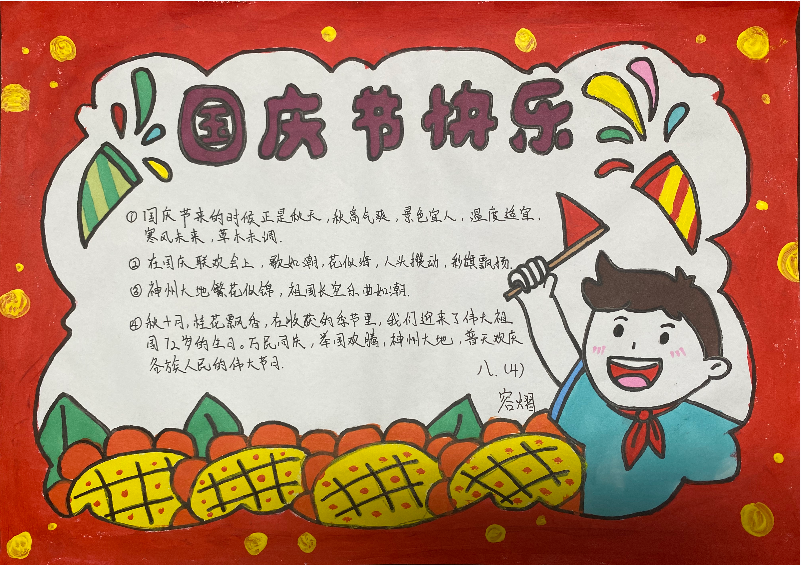 国庆节快乐
①国庆节来的时候正是秋天,秋高气爽,景色宜人,温度适宜,
寒风未来,草木未凋.
②在国庆联欢会上,歌如潮,花似海,人头攒动,彩旗飘扬
③神州大地繁花似锦,祖国长空乐曲如潮.
④秋十月,桂花飘香,在收获的季节里,我们迎来了伟大祖
国72岁的生日.万民同庆,举国欢腾,神州大地,普天欢庆
各族人民的伟大节日.
八.(4)
容熠